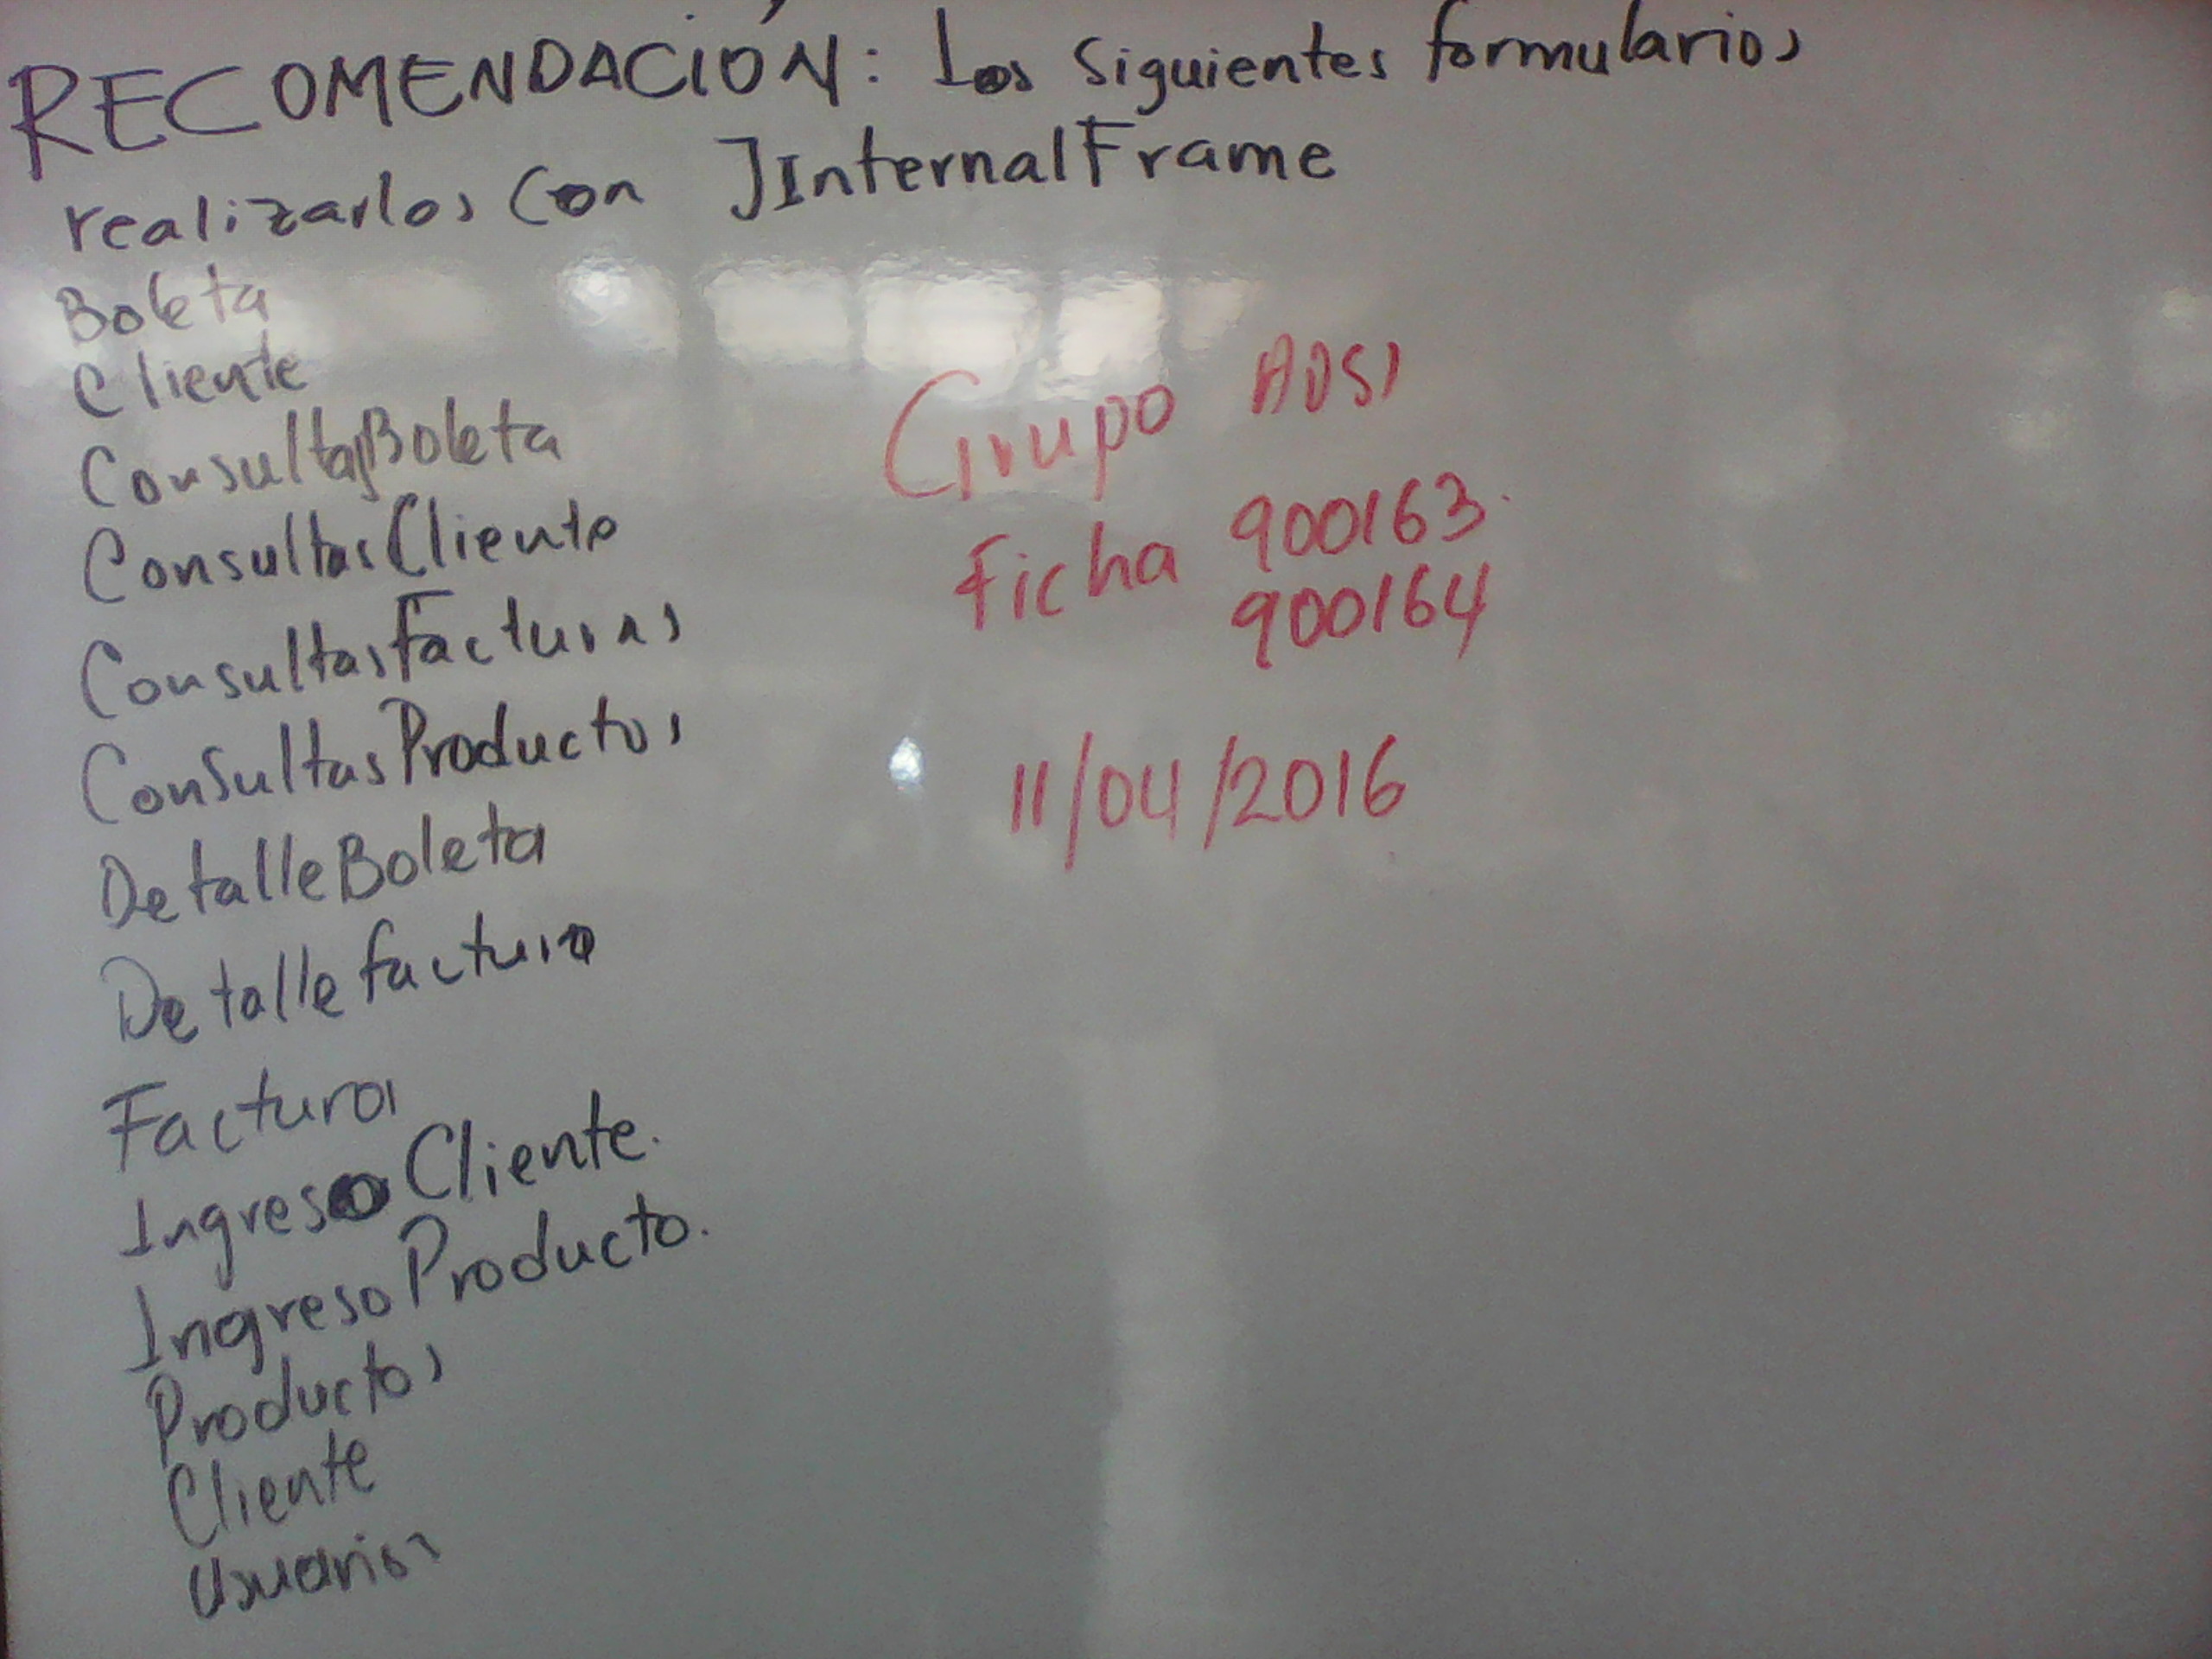 RECOMENDACIÓN: Los siguientes formularios
realizarlos con JInternalFrame
Boleta
Cliente
ConsultasBoleta
ConsultasCliente
ConsultasFacturas
ConsultasProductos
DetalleBoleta
Detallefactura
Factura
IngresoCliente.
IngresoProducto.
Productos
Cliente
Usuarios
Grupo ADSI
Ficha 900163.
900164
11/04/2016